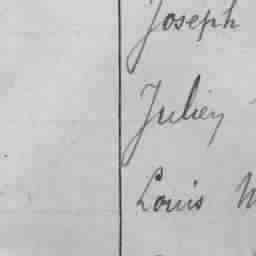 Joseph
Julien
Louis